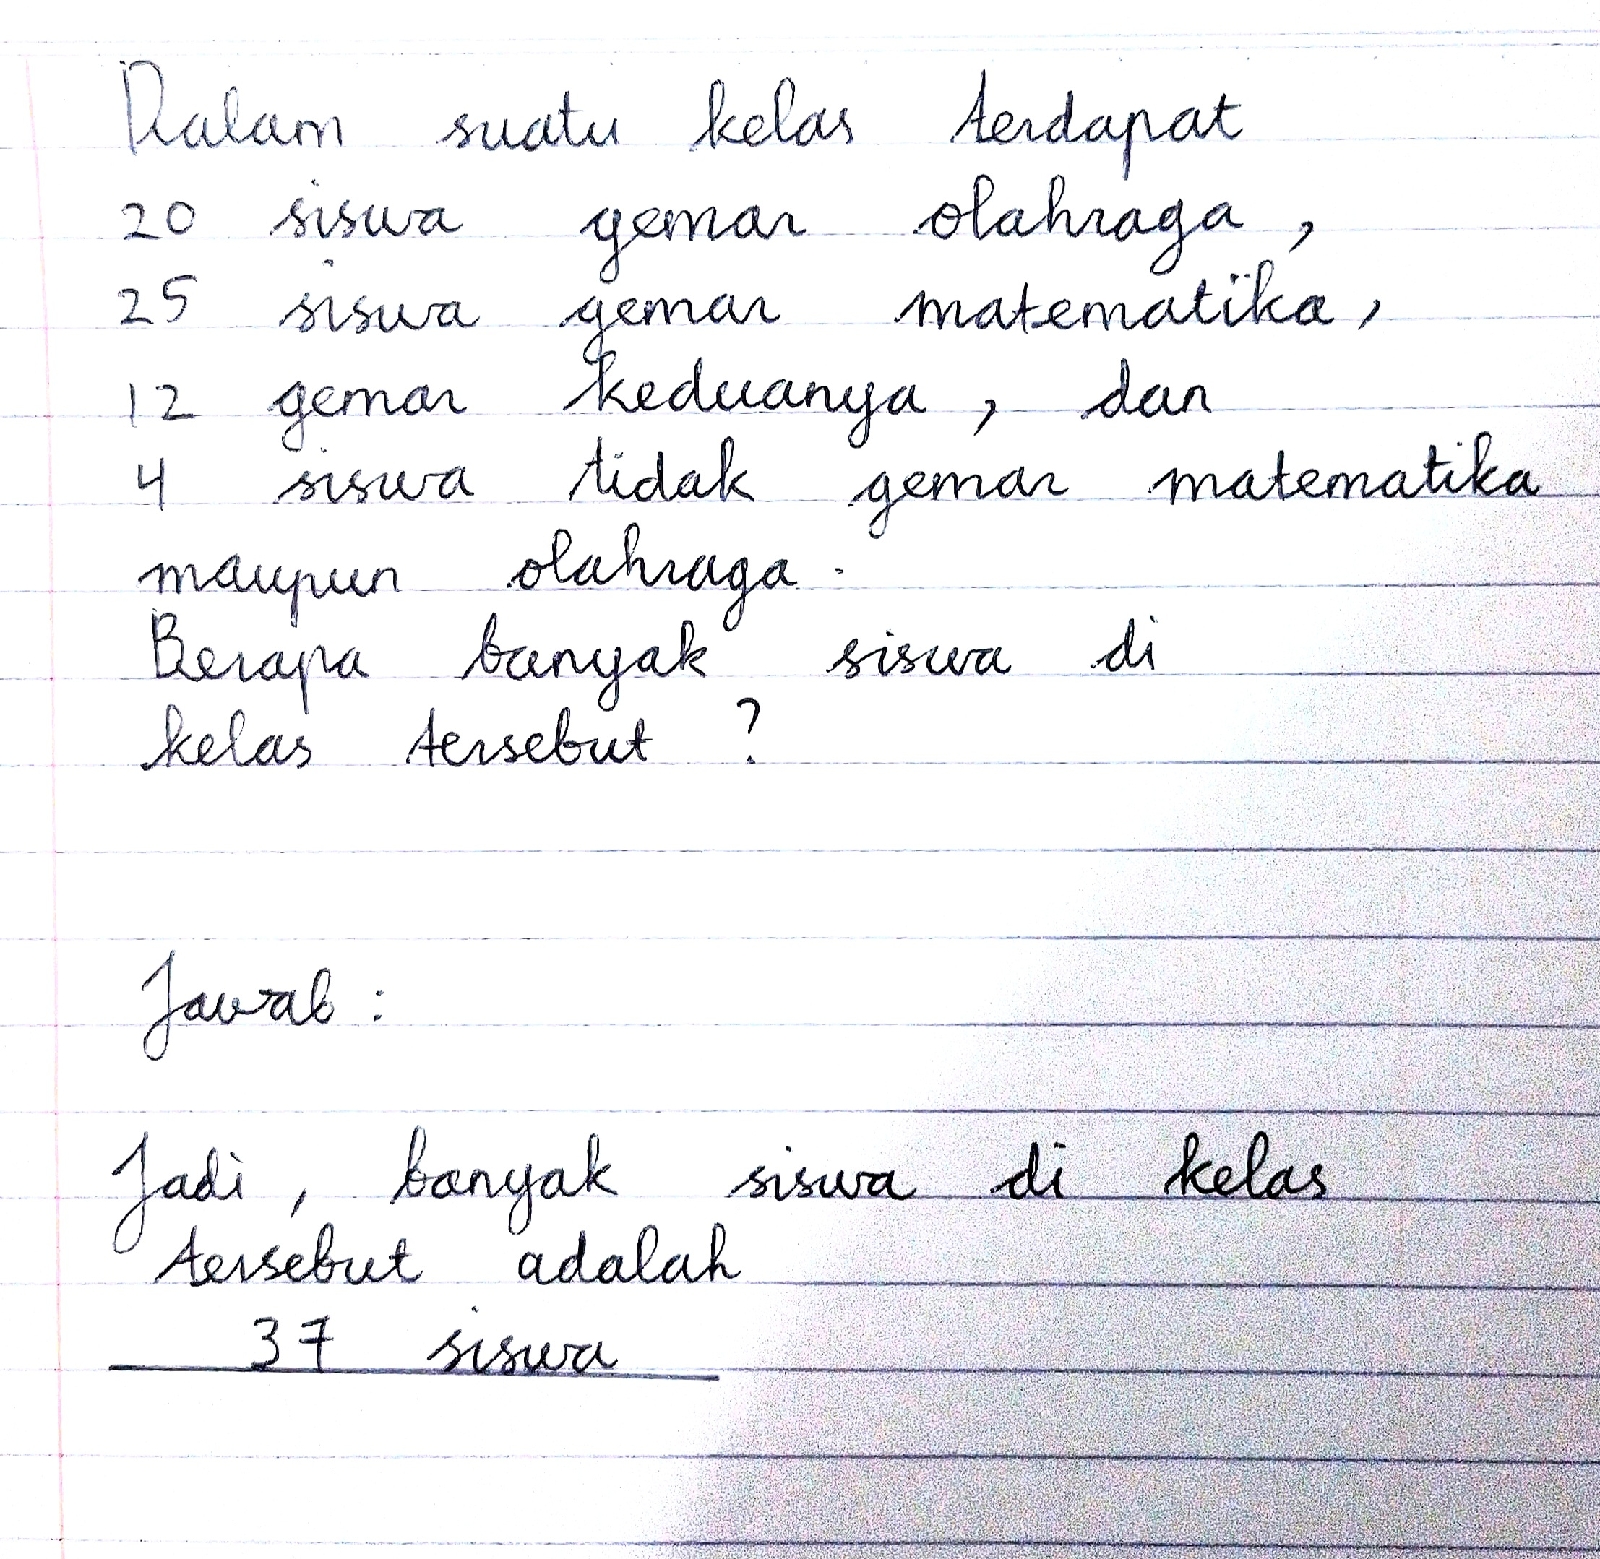 Dalam suatu kelas terdapat
20 siswa gemar olahraga,
25 siswa gemar matematika,
12 gemar keduanya, dan
4 siswa tidak gemar matematika
maupun olahraga.
Berapa banyak siswa di
kelas tersebut ?
Jawab :
Jadi, banyak siswa di kelas
tersebut adalah
37 siswa